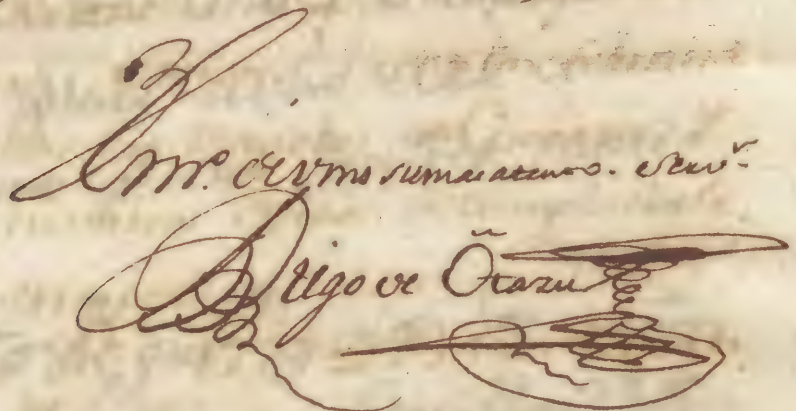 de Vmd su mas atento. servr.
Diego de Otazu